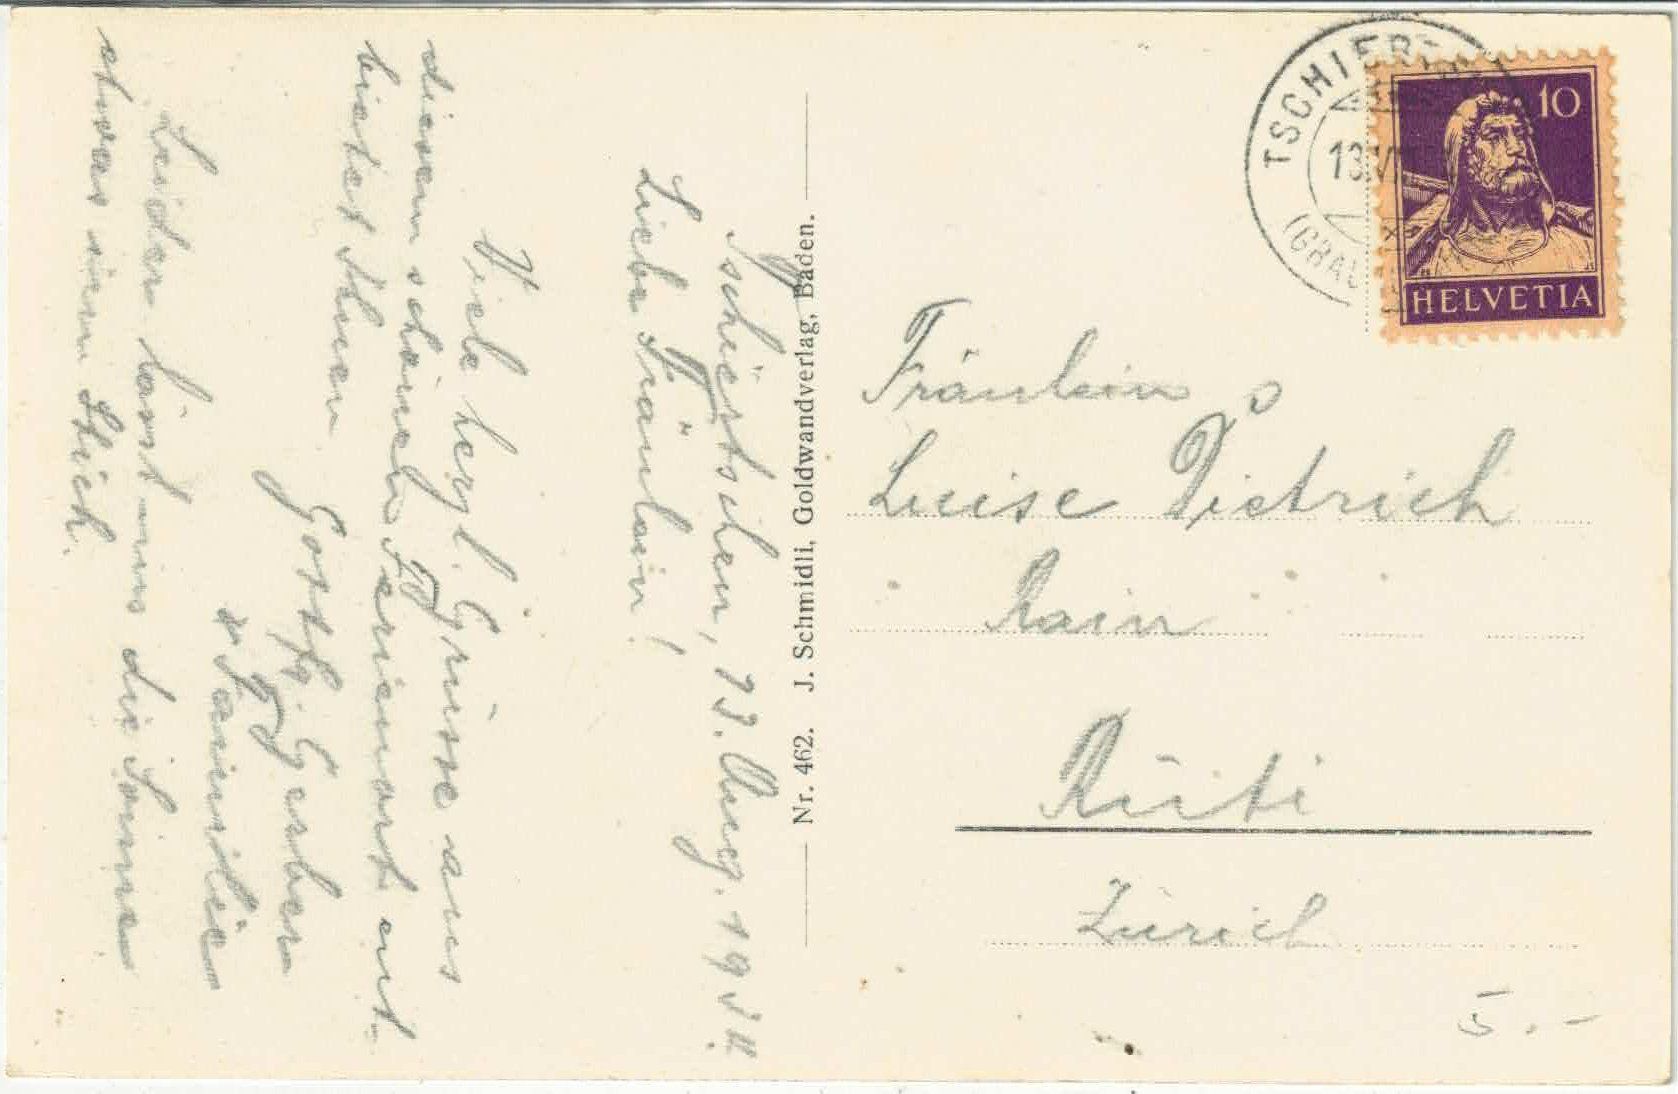 Tschiertschen, 13. Aug. 193
Liebe Fräulein!
Viele herzl. Grüsse aus
diesem schönen Ferienort ent-
bietet Ihnen
Gottfr. Gerber
+ Familie
Leider lässt uns die Sonne
etwas im Stich.
Nr. 462. J. Schmidli, Goldwandverlag, Baden.
TSCHIERT
13.VI
(GRAU
10
HELVETIA
Fräulein
Luise Dietrich
Rain
Rüti
Zürich
5.-